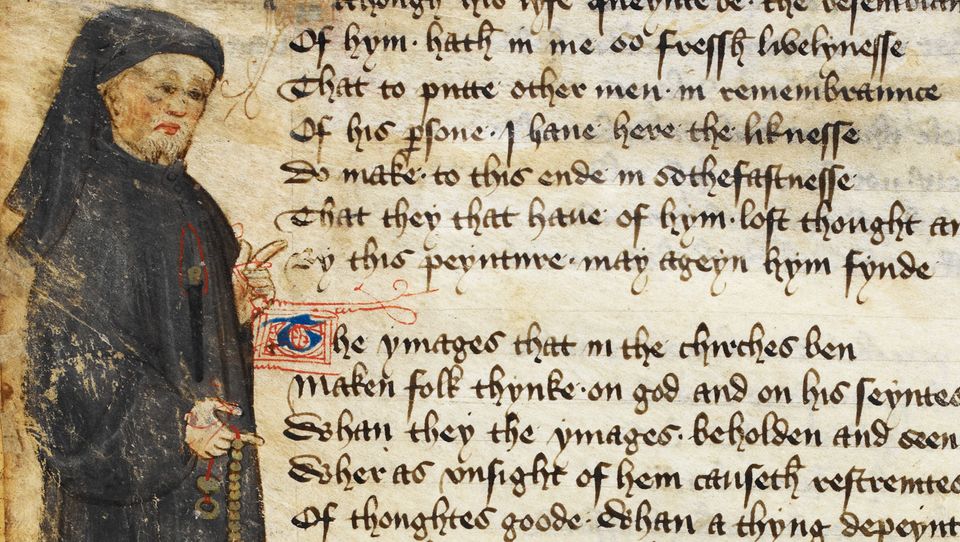 though his lyfe queynte be · the resemblan
Of hym · hath in me so fressh lyuelynesse
That to putte other men · in remembraunce
Of his ꝑsone · I haue here the liknesse
Do make · to this ende in sothefastnesse
That they that haue of hym · lost thought an
By this peynture · may ageyn hym fynde
The ymages that in the chirches ben
Maken folk thynke · on god and on his seyntes
Whan they the ymages · beholden and seen
Wher as vnsight of hem causeth restreintes
Of thoughtes goode · Whan a thyng depeynt